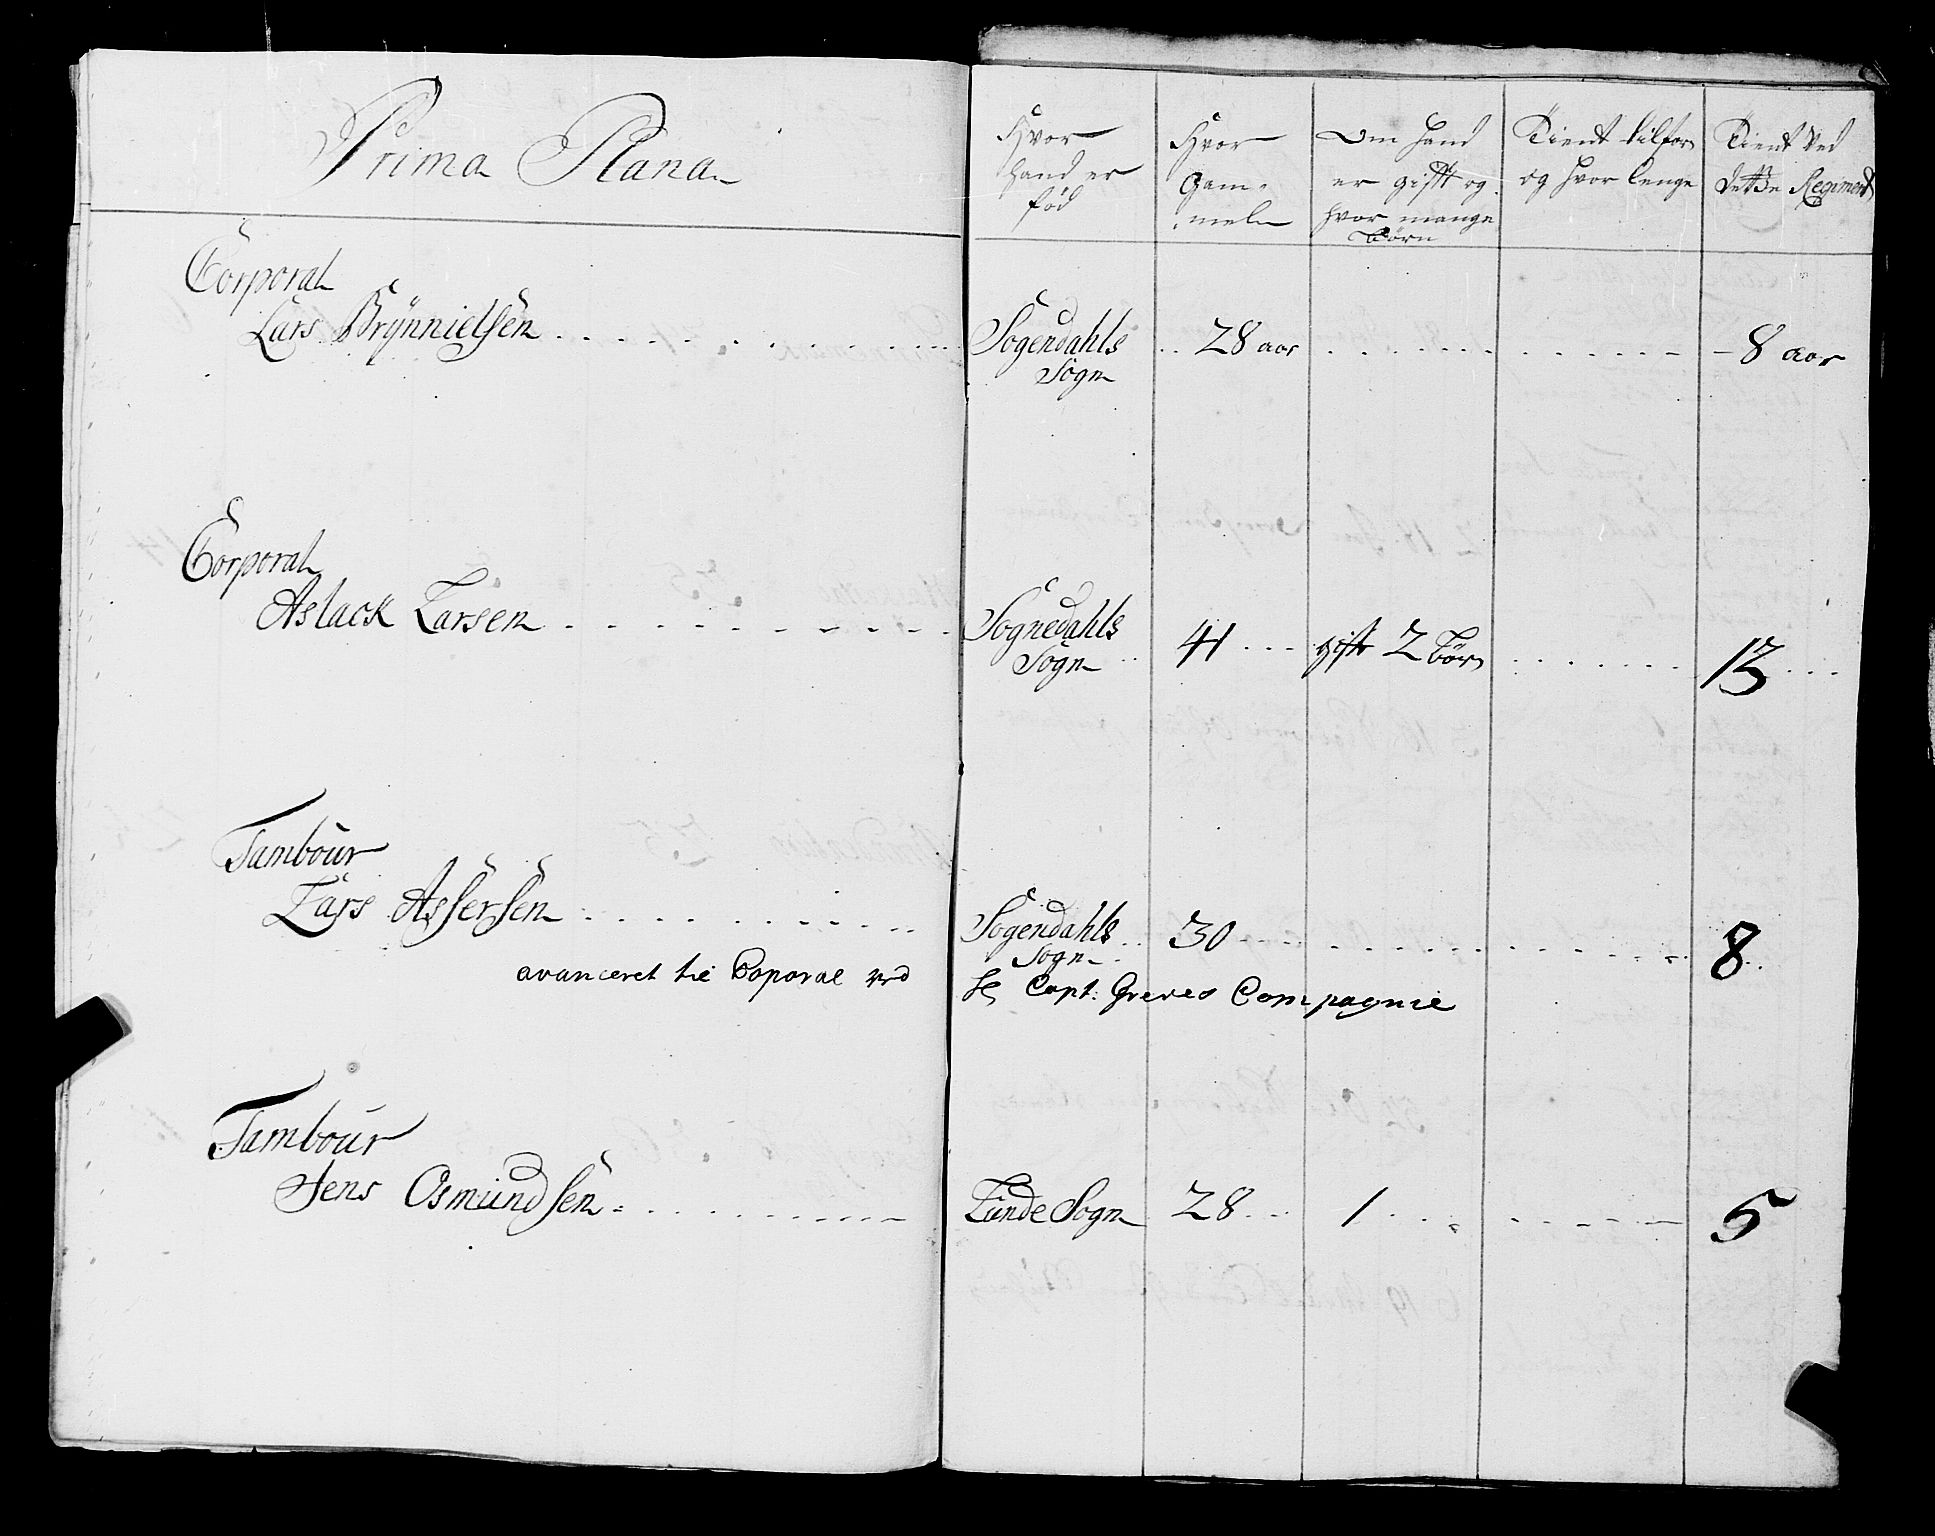 Prima Plana
Hvor
hand er
fød
Hvor
Gam-
mel
Om hand
er gift og
hvor mange
Børn
Tient tilforn
og hvor lenge
Tient ved
dette Regiment
Corporal
Lars Brÿnnielsen
Sogendahls
Sogn
28 aar
8 aar
Corporal
Aslack Larsen
Sognedahls
Sogn
41
gift 2 Børn
13
Tambour
Lars Assersen
Sogendahls
Sogn
30
8
avanceret til Coporal ved
Capt: Greves Compagnie
Tambour
Jens Osmundsen
Lunde Sogn
28
1
5